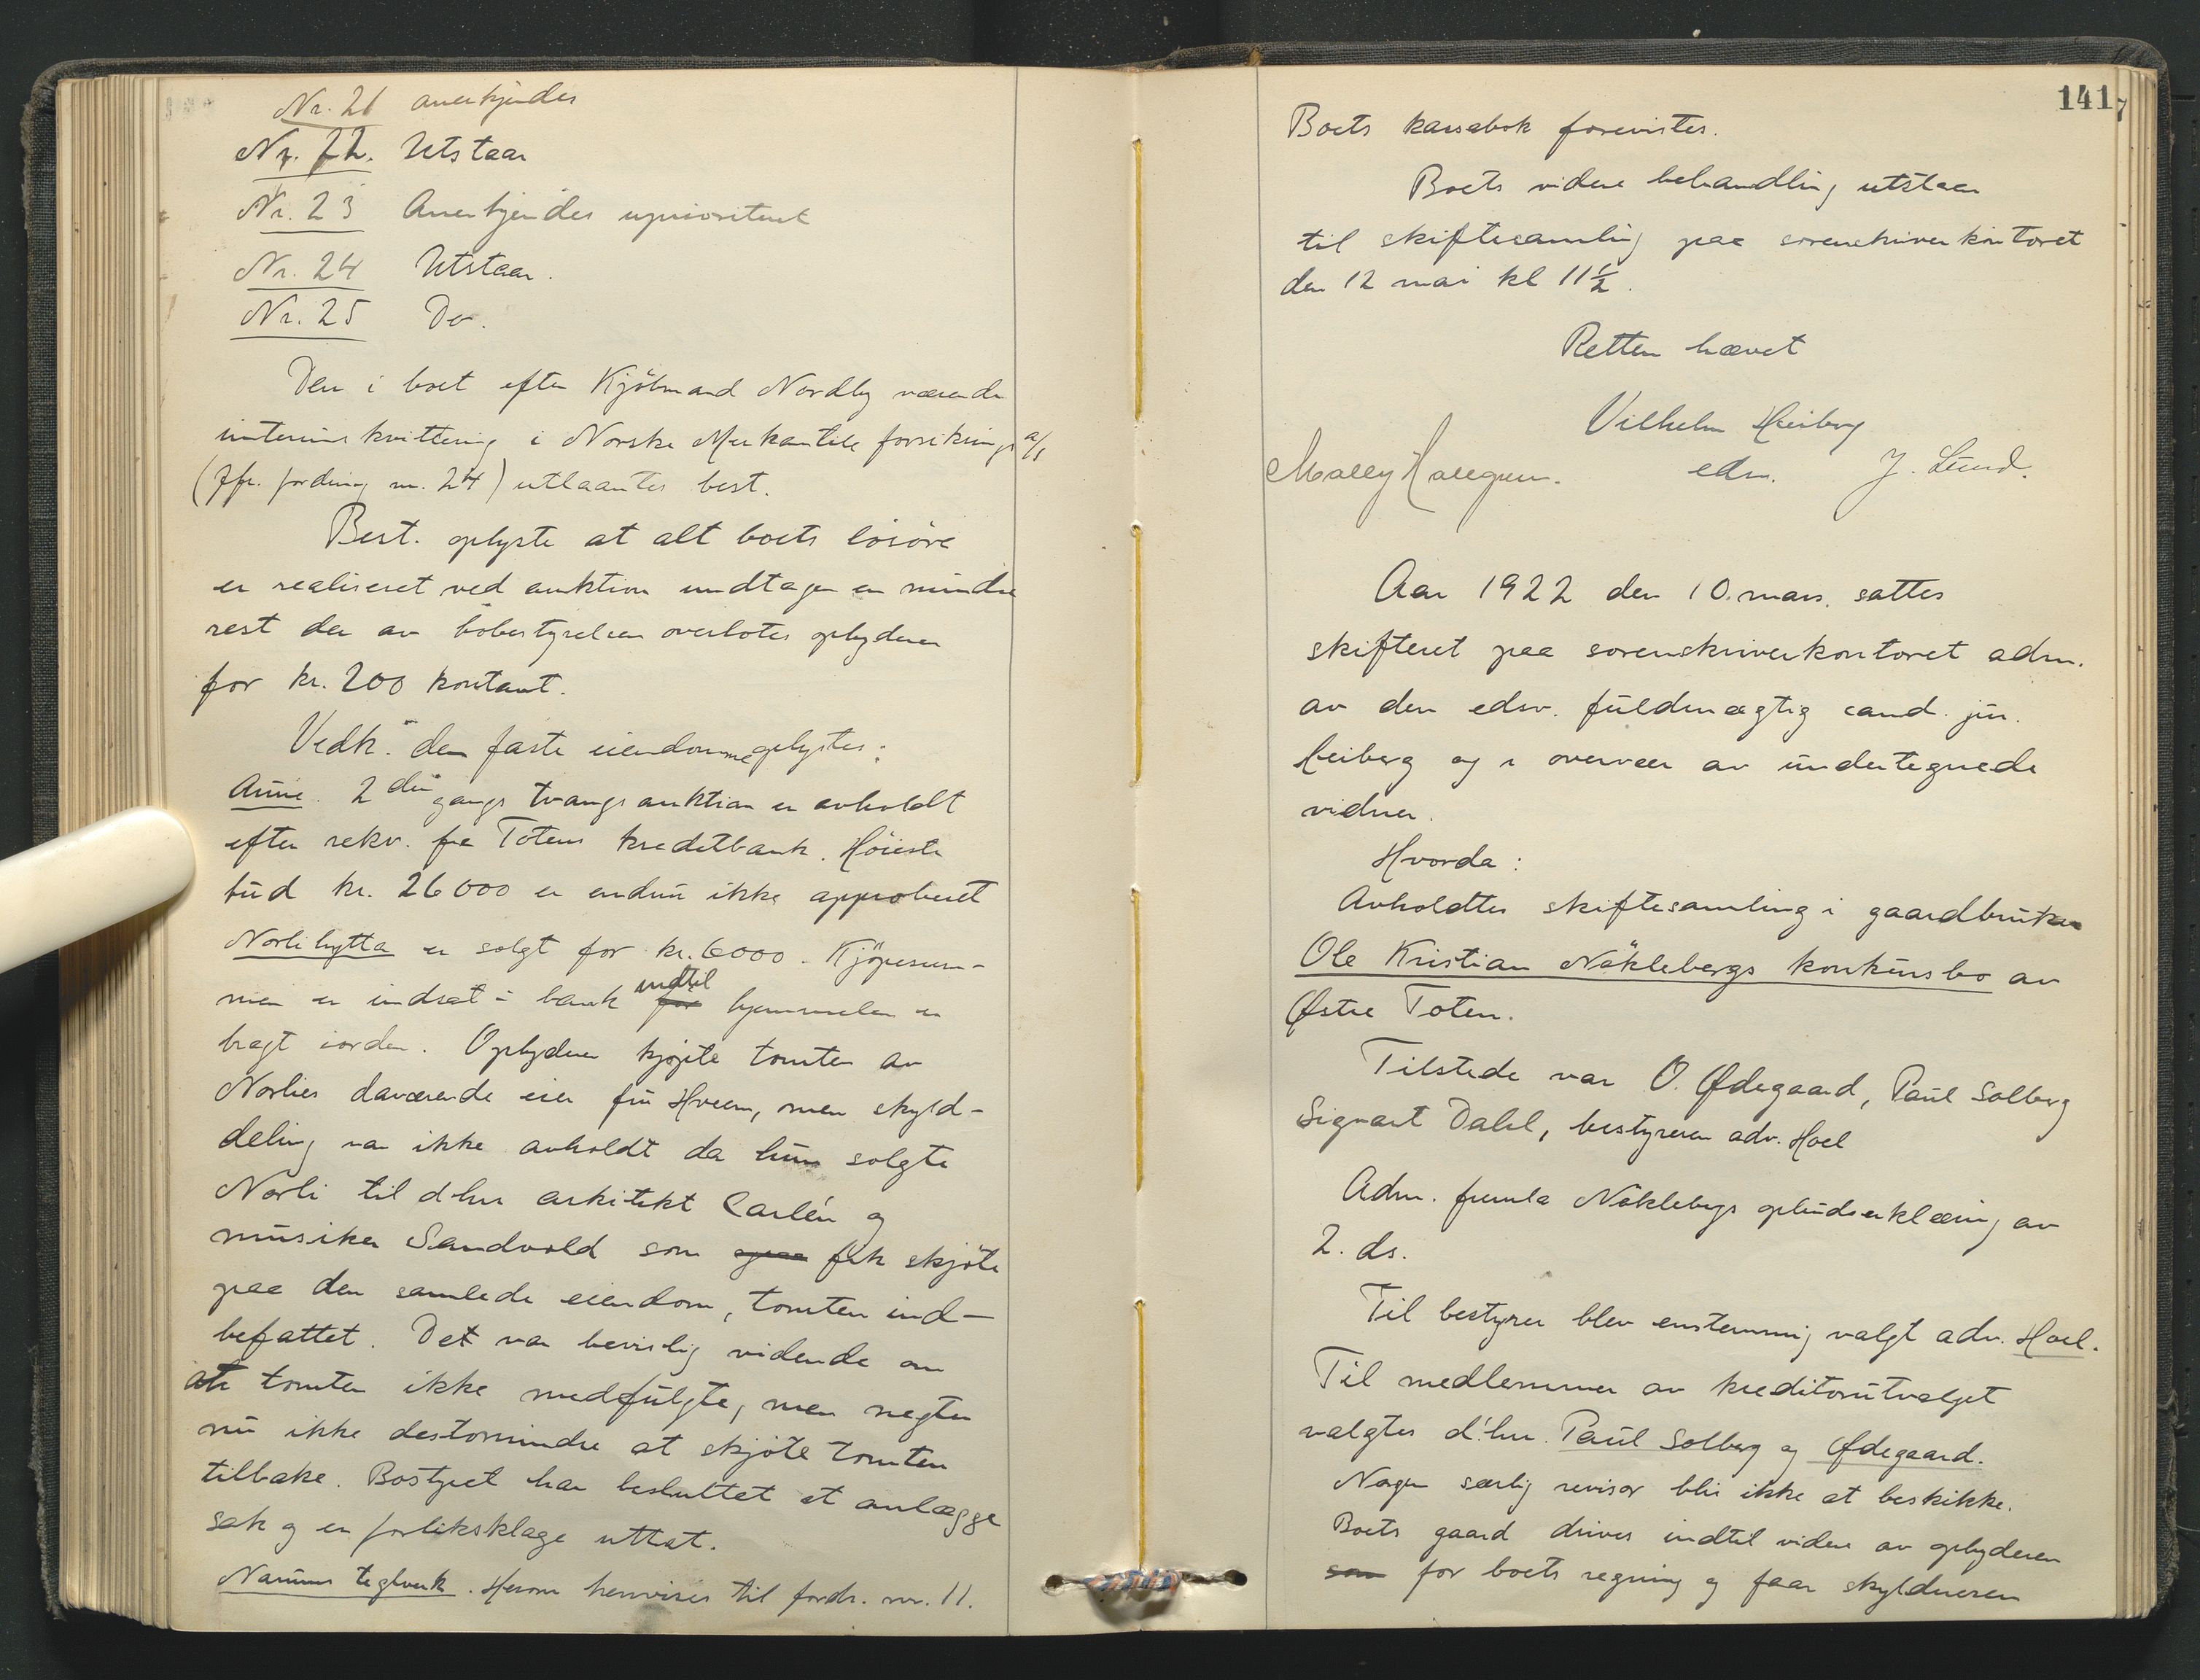 Nr. 21 anerkjendes
Nr. 22. Utstaar
Nr. 23 Anerkjendes uprioritert
Nr. 24 Utstaar.
Nr. 25 Do.
Den i boet efter Kjöbmand Nordby værende
interimskvittering i Norske Merkantile forsikrings a/s
(Jfr. fordring nr. 24) utlaantes best.
Best. oplyste at alt boets lösöre
er realiseret ved auktion undtagen en mindre
rest der av bobestyrelsen overlotes opbyderen
for kr. 200 kontant.
Vedk. den faste eiendomme oplystes:
2den gangs tvangsauktion er avholdt
efter rekv. fra Totens kreditbank. Høieste
bud kr. 26000 er endnu ikke approberet
Norlihytta er solgt for kr. 6000. Kjöpesum-
men er indsat i bank for indtil hjemmelen er
bragt iorden. Opbyderen kjøpte tomten av
Norlies daværende eier fru Hveem, men skyld-
deling var ikke avholdt da hun solgte
Norli til d'hrr arkitekt Carlén og
musiker Sandvold som fik skjöte
paa den samlede eiendom, tomten ind-
befattet. Det var bevislig vidende om
at tomten ikke medfulgte, men negter
nu ikke destomindre at skjöte tomten
tilbake. Bostyret har besluttet at anlægge
sak og er forliksklage uttat.
teglverk. Herom henvises til fordr. nr. 11.
141
Boets kassabok forevistes.
Boets videre behandling utstaar
til skiftesamling paa sorenskriverkontoret
den 12 mai kl 11½.
Retten hævet
Vilhelm Heiberg
edsv. J. Lund.
Aar 1922 den 10. mars. sattes
skifteret paa sorenskriverkontoret adm.
av den edsv. fuldmægtig cand. jur.
Heiberg og i overvær av undertegnede
vidner.
Hvorda:
Avholdtes skiftesamling i gaardbruker
Ole Kristian Nöklebergs konkursbo av
Østre Toten.
Tilstede var O. Ødegaard, Paul Solberg
Sigvart Dahl, bestyreren adv. Hoel
Adm. fremla Nöklebergs opbudserklæring av
2. ds.
Til bestyrer blev enstemmig valgt adv. Hoel.
Til medlemmer av kreditorutvalget
valgtes d'hrr. Paul Solberg og Ødegaard.
Nogen særlig revisor blir ikke at beskikke.
Boets gaard drives indtil videre av opbyderen
som for boets regning og faar skyldneren